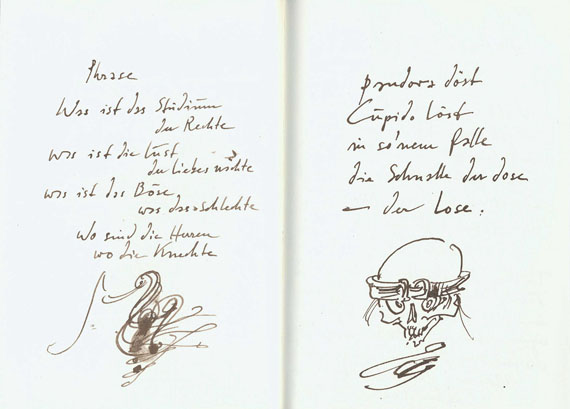 Phrase
Was ist das Studium
der Rechte
was ist die Lust
der Liebesnächte
was ist das Böse,
was das Schlechte
Wo sind die Herren
wo die Knechte
pandora döst
Cupido löst
in so'nem falle
die Schnalle der dose
— der Lose.